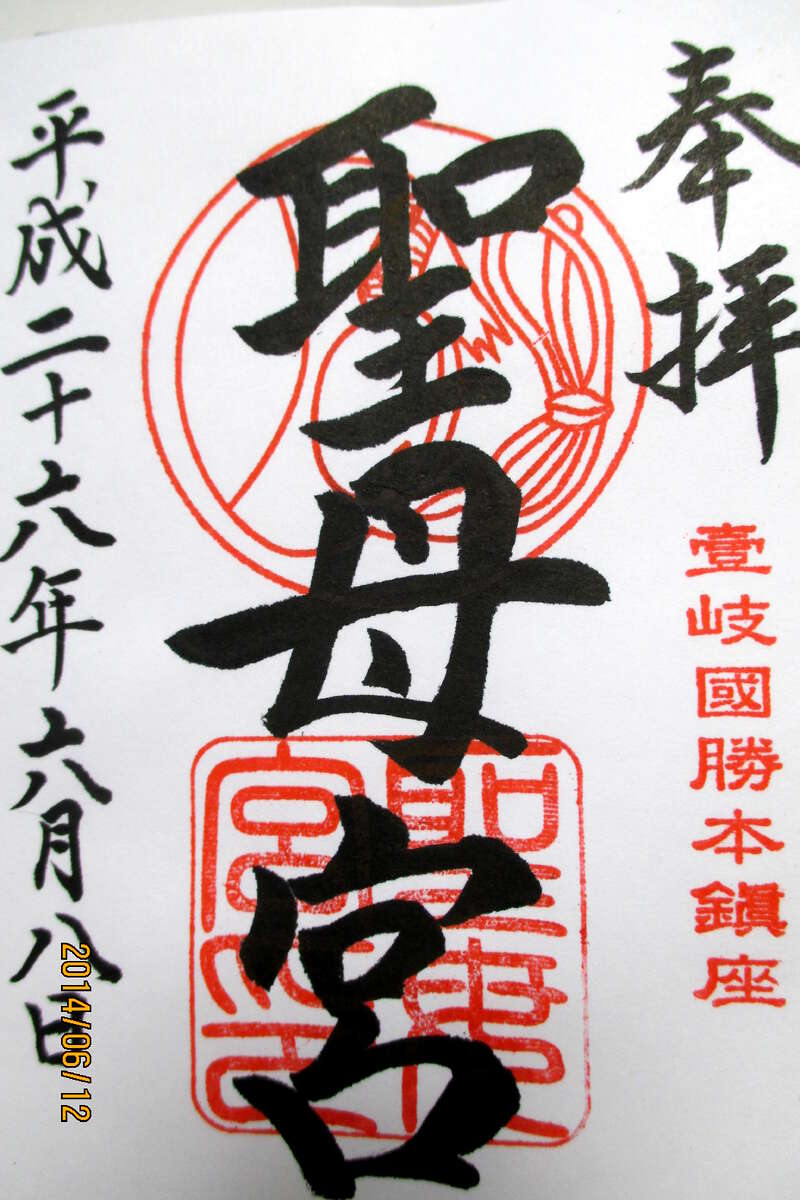 奉拝
壹岐國勝本鎭座
聖母宮
聖母宮印
平成二十六年六月八日
2014/06/12